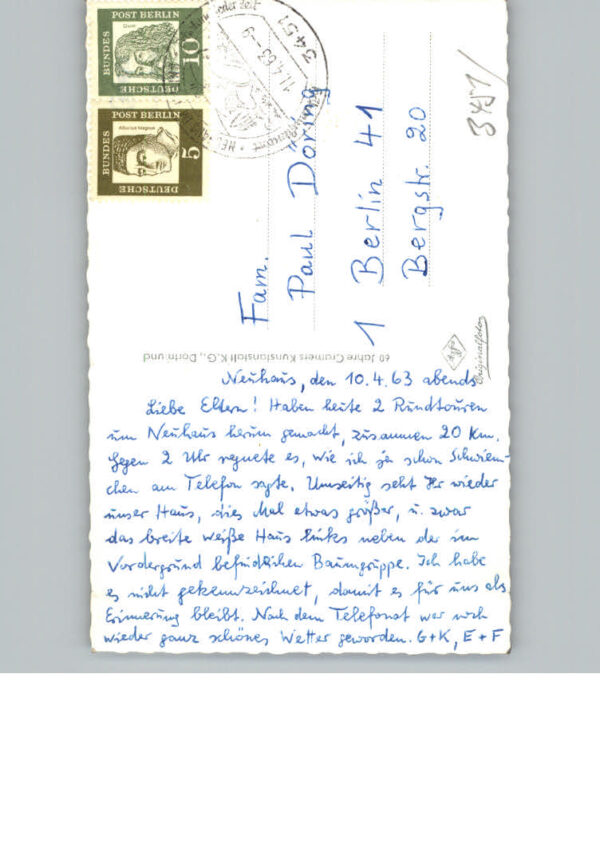 DEUTSCHE BUNDES POST BERLIN
10
DEUTSCHE BUNDES POST BERLIN
Albertus Magnus
5
3451
11.4.63-9
3451
Fam.
Paul Döring
1 Berlin 41
Bergstr. 20
60 Jahre Cramers Kunstanstalt K.G., Dortmund
Originalfoto
Neuhaus, den 10.4.63 abends
Liebe Eltern! Haben heute 2 Rundtouren
um Neuhaus herum gemacht, zusammen 20 Km.
Gegen 2 Uhr regnete es, wie ich ja schon Schwien-
chen am Telefon sagte. Umseitig seht Ihr wieder
unser Haus, dies Mal etwas größer, u. zwar
das breite weiße Haus links neben der im
Vordergrund befindlichen Baumgruppe. Ich habe
es nicht gekennzeichnet, damit es für uns als
Erinnerung bleibt. Nach dem Telefonat war noch
wieder ganz schönes Wetter geworden. G+K, E+F